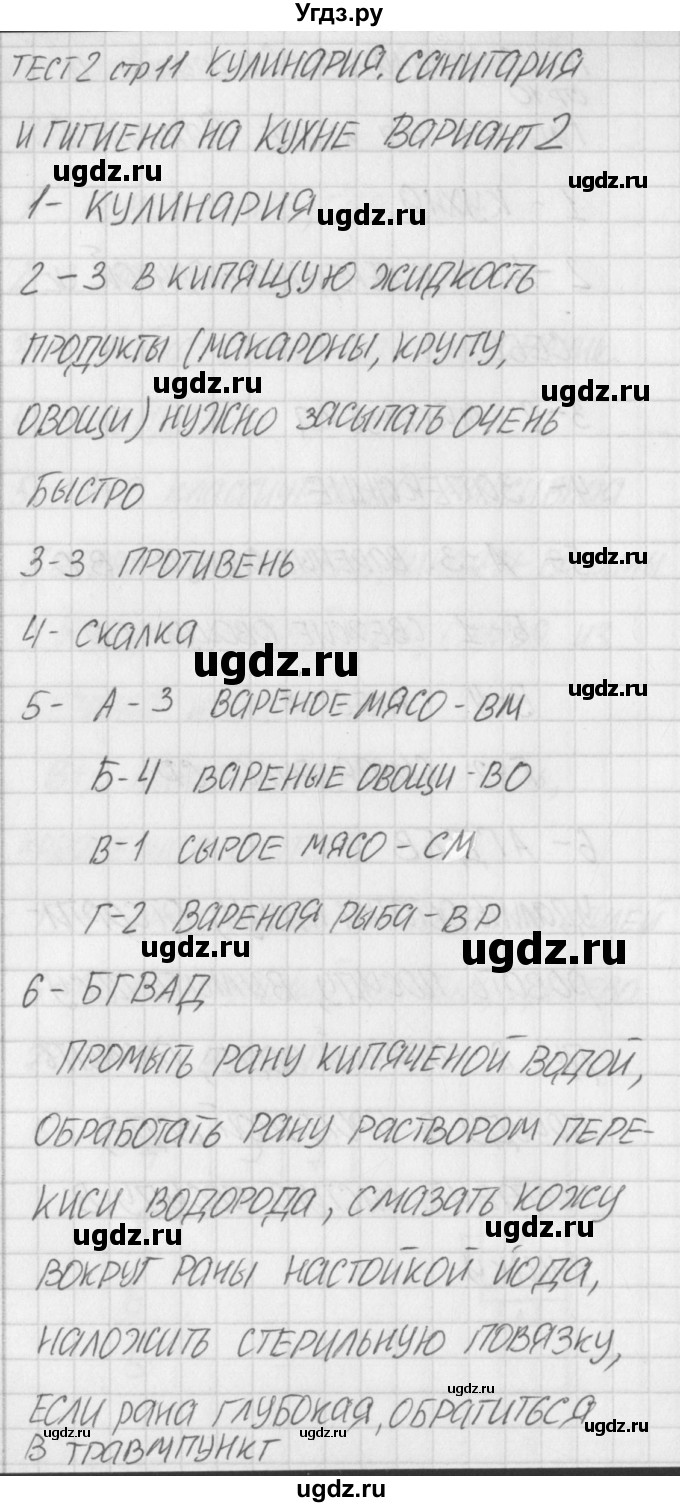 Угдз.ру
ТЕСТ 2 стр 11 КУЛИНАРИЯ. САНИТАРИЯ
И ГИГИЕНА НА КУХНЕ ВАРИАНТ 2
ugdz.ru
ugdz.ru
1- КУЛИНАРИЯ
ugdz.ru
2-3 В КИПЯЩУЮ ЖИДКОСТЬ
ПРОДУКТЫ (МАКАРОНЫ, КРУПУ,
ugdz.ru
ugdz.ru
ОВОЩИ) НУЖНО ЗАСЫПАТЬ ОЧЕНЬ
БЫСТРО
3-3 ПРОТИВЕНЬ
ugdz.ru
4- СКАЛКА
ugdz.ru
ugdz.ru
5- А-3 ВАРЕНОЕ МЯСО-ВМ
Б-4 ВАРЕНЫЕ ОВОЩИ-ВО
В-1 СЫРОЕ МЯСО-СМ
Г-2 ВАРЕНАЯ РЫБА-ВР
ugdz.ru
ugdz.ru
6- БГВАД
ПРОМЫТЬ РАНУ КИПЯЧЕНОЙ ВОДОЙ,
ОБРАБОТАТЬ РАНУ РАСТВОРОМ ПЕРЕ-
КИСИ ВОДОРОДА, СМАЗАТЬ КОЖУ
ugdz.ru
ugdz.ru
ВОКРУГ РАНЫ НАСТОЙКОЙ ЙОДА,
НАЛОЖИТЬ СТЕРИЛЬНУЮ ПОВЯЗКУ,
ugdz.ru
ЕСЛИ РАНА ГЛУБОКАЯ, ОБРАТИТЬСЯ
ugdz.ru
В ТРАВМПУНКТ
ugdz.ru